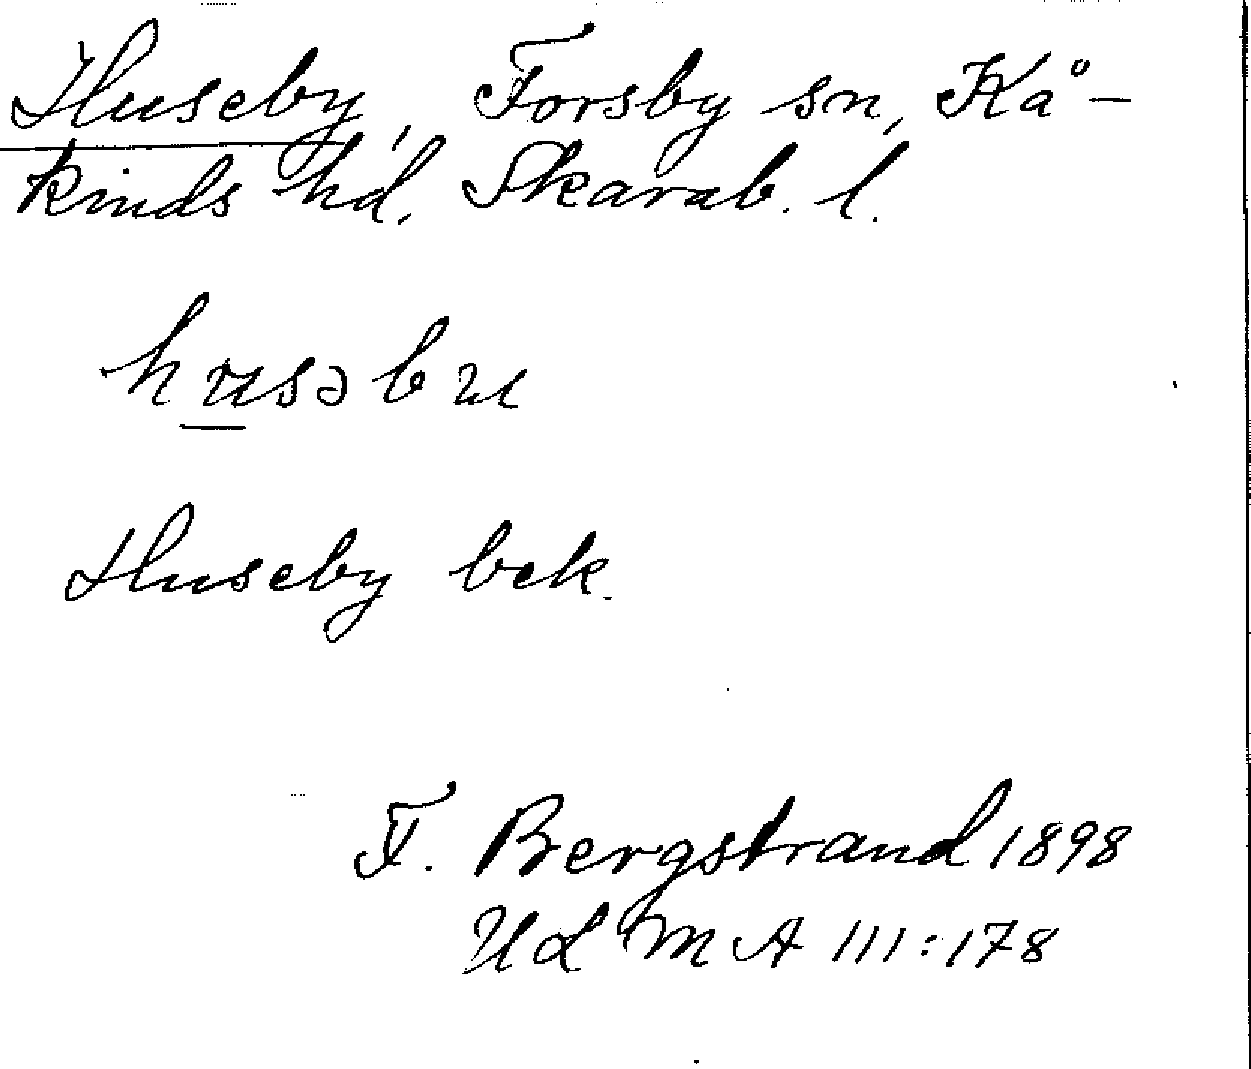 Huseby, Forsby sn, Kå-
kinds hd. Skarab. l.
husəbu
Huseby bek.
F. Bergstrand 1898
ULMA 111:178